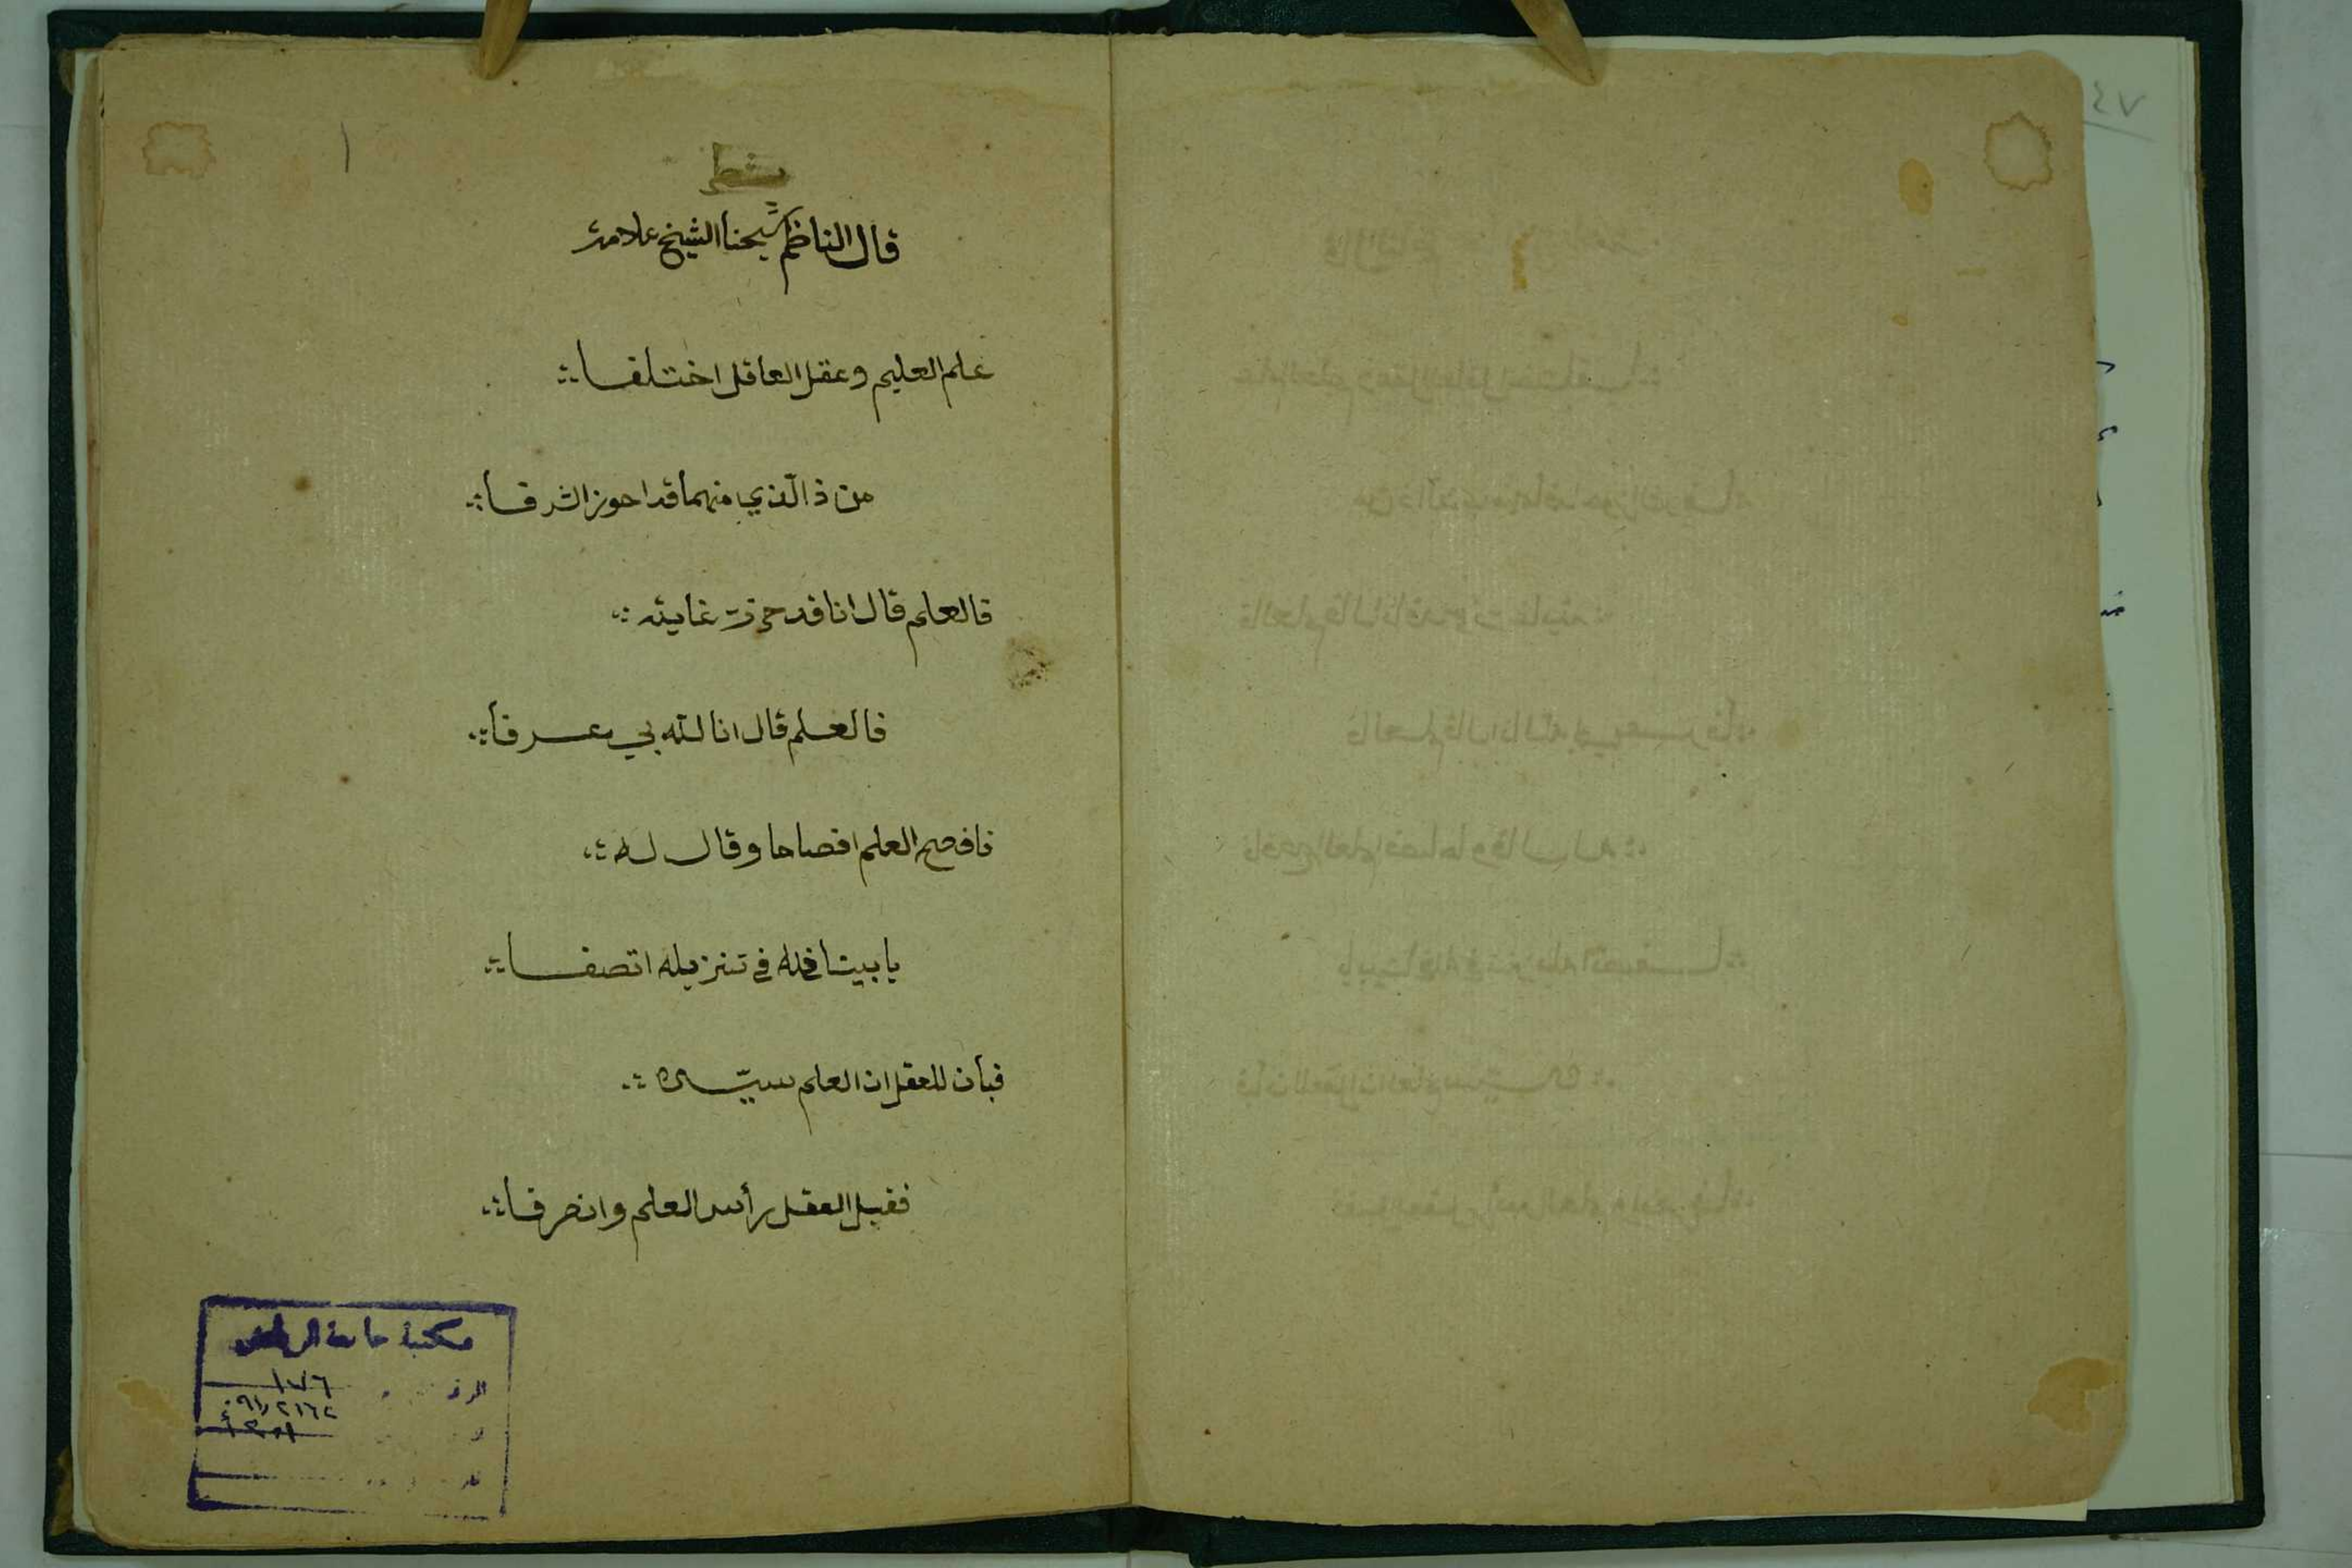 قال الناظم شيخنا الشيخ علامة
علم العليم وعقل العاقل اختلفا
من ذا الذي منهما قد احوز الشرفا
فالعلم قال انا قد حزت غايته
فالعلم قال انا لله بي عرفا
فافصح العلم افصاحا وقال له
يا بيننا في تنزيله اتصفا
فبان للعقل ان العلم سيده
فقبل العقل رأس العلم وانصرفا
مكتبة جامعة الرياض
١